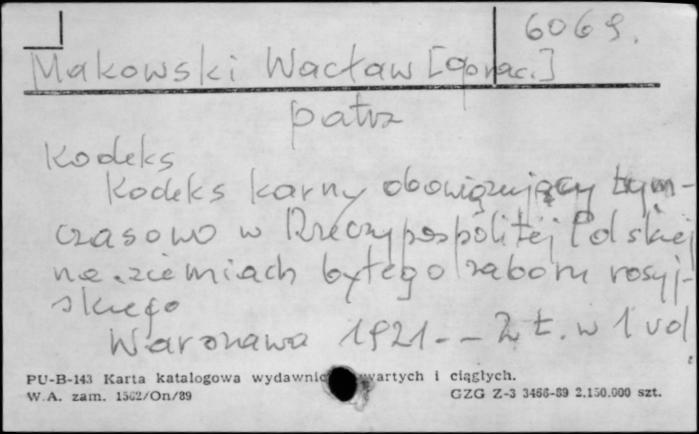 6069.
Makowski Wacław [oprac.]
patrz
Kodeks
Kodeks karny obowiązujący tym-
czasowo w Rzeczypospolitej Polskiej
na ziemiach byłego zaboru rosyj-
skiego
Warszawa 1921-- 2 t. w 1 vol
PU-B-143 Karta katalogowa wydawnic wartych i ciągłych.
W.A. zam. 1562/On/89 GZG Z-3 3466-89 2.150.000 szt.